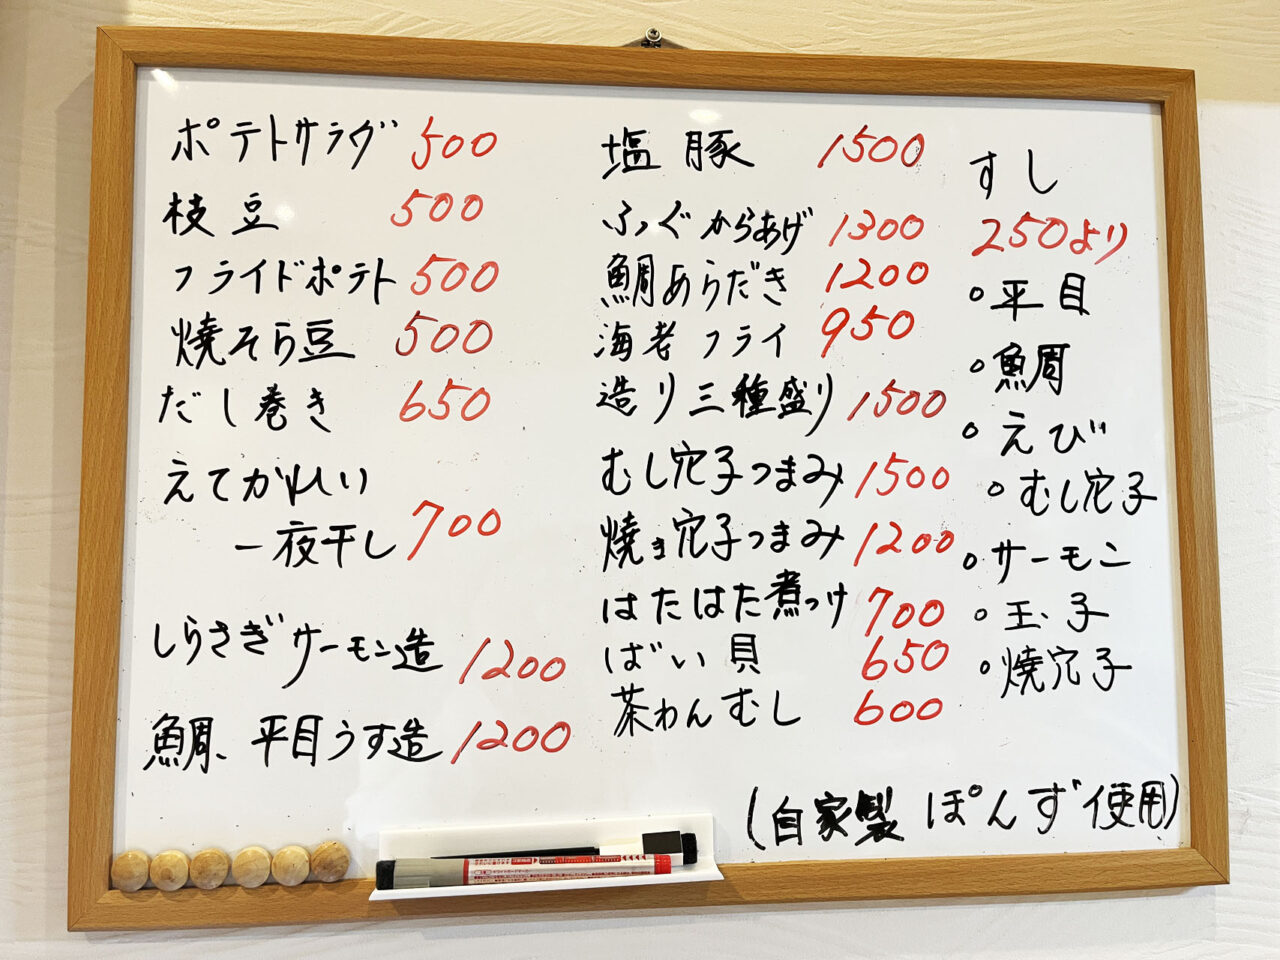 ポテトサラダ 500
枝豆 500
フライドポテト 500
焼そら豆 500
だし巻き 650
えてかれい
一夜干し 700
しらさぎサーモン造 1200
鯛、平目うす造 1200
塩豚 1500
ふぐからあげ 1300
鯛あらだき 1200
海老フライ 950
造り三種盛り 1500
むし穴子つまみ 1500
焼き穴子つまみ 1200
はたはた煮つけ 700
ばい貝 650
茶わんむし 600
すし
250より
○平目
○鯛
○えび
○むし穴子
○サーモン
○玉子
○焼穴子
(自家製ぽんず使用)